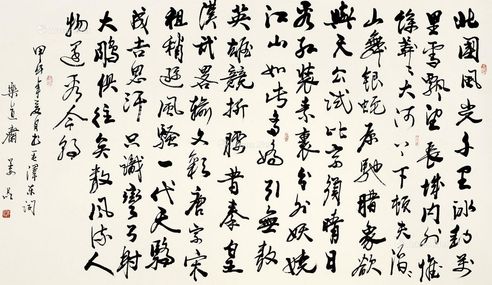 北國風光千里冰封萬
里雪飄望長城内外惟
餘莽〻大河上下頓失滔〻
山舞銀蛇原馳臘象欲
與天公試比高須晴日
看紅裝素裹分外妖嬈
江山如此多嬌引無數
英雄競折腰昔秦皇
漢武略輸文彩唐宗宋
祖稍遜風騷一代天驕
成吉思汗只識彎弓射
大鵰俱往矣數風流人
物還看今朝
甲午年夏月書毛澤東詞
樂道齋